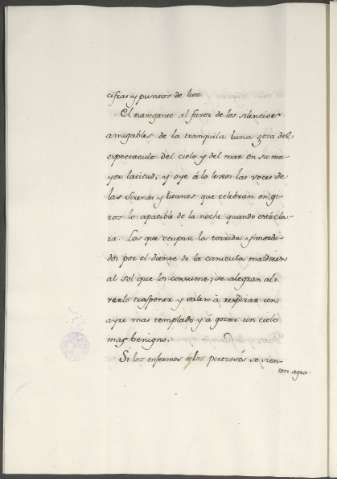 cifras y puntos de luz.
El navegante al favor de los silencios
amigables de la tranquila luna goza del
espectaculo del cielo y del mar en su ma
yor latitud, y oye á lo lexos las voces de
las Sirenas y tritones que celebran en gi
ros lo apacible de la noche quando está cla
ra. Los que ocupan la torrida
dos por el ardor de la canicula maldicen
al sol que los consume, y se alegran al
verlo trasponer y salen á respirar con
ayre mas templado y á gozar un cielo
mas benigno.
Si los enfermos ó los perezosos se sien-
ten agra